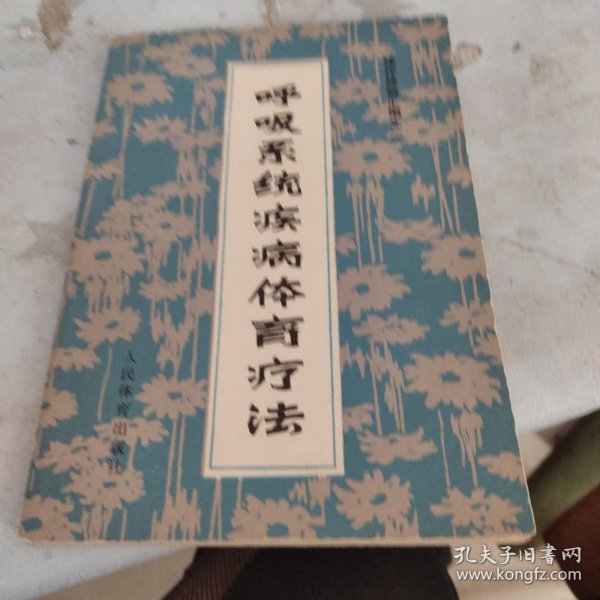 呼吸系统疾病体育疗法
人民体育出版社
孔夫子旧书网
www.kongfz.com